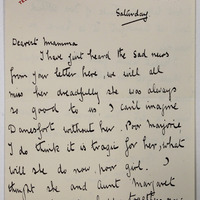 Saturday
Dearest Mamma
I have just heard the sad news
from your letter here, we will all
miss her dreadfully she was always
so good to us. I can't imagine
Danesfort without her. Poor Marjorie
I do think it is tragic for her, what
will she do now, poor girl. I
thought she and Aunt Margaret
together